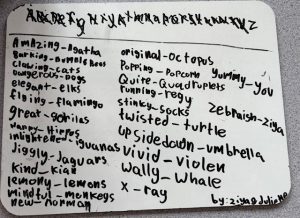 Amazing-Agatha
Barking-Bumblebees
Clawing-cats
Dangerous-Dogs
elegant-elks
flying-flamingo
great-gorilas
Happy-Hippos
inlightened-iguanas
Jiggly-Jaguars
Kind-Kian
lemony-lemons
Mindful-monkeys
new-norman
original-octopus
Popping-Popcorn
Quite-Quadruplets
running-
stinky-socks
twisted-turtle
upsidedown-umbrella
vivid-violen
Wally-Whale
X-ray
yummy-you
Zebraish-Ziya
by: ziya